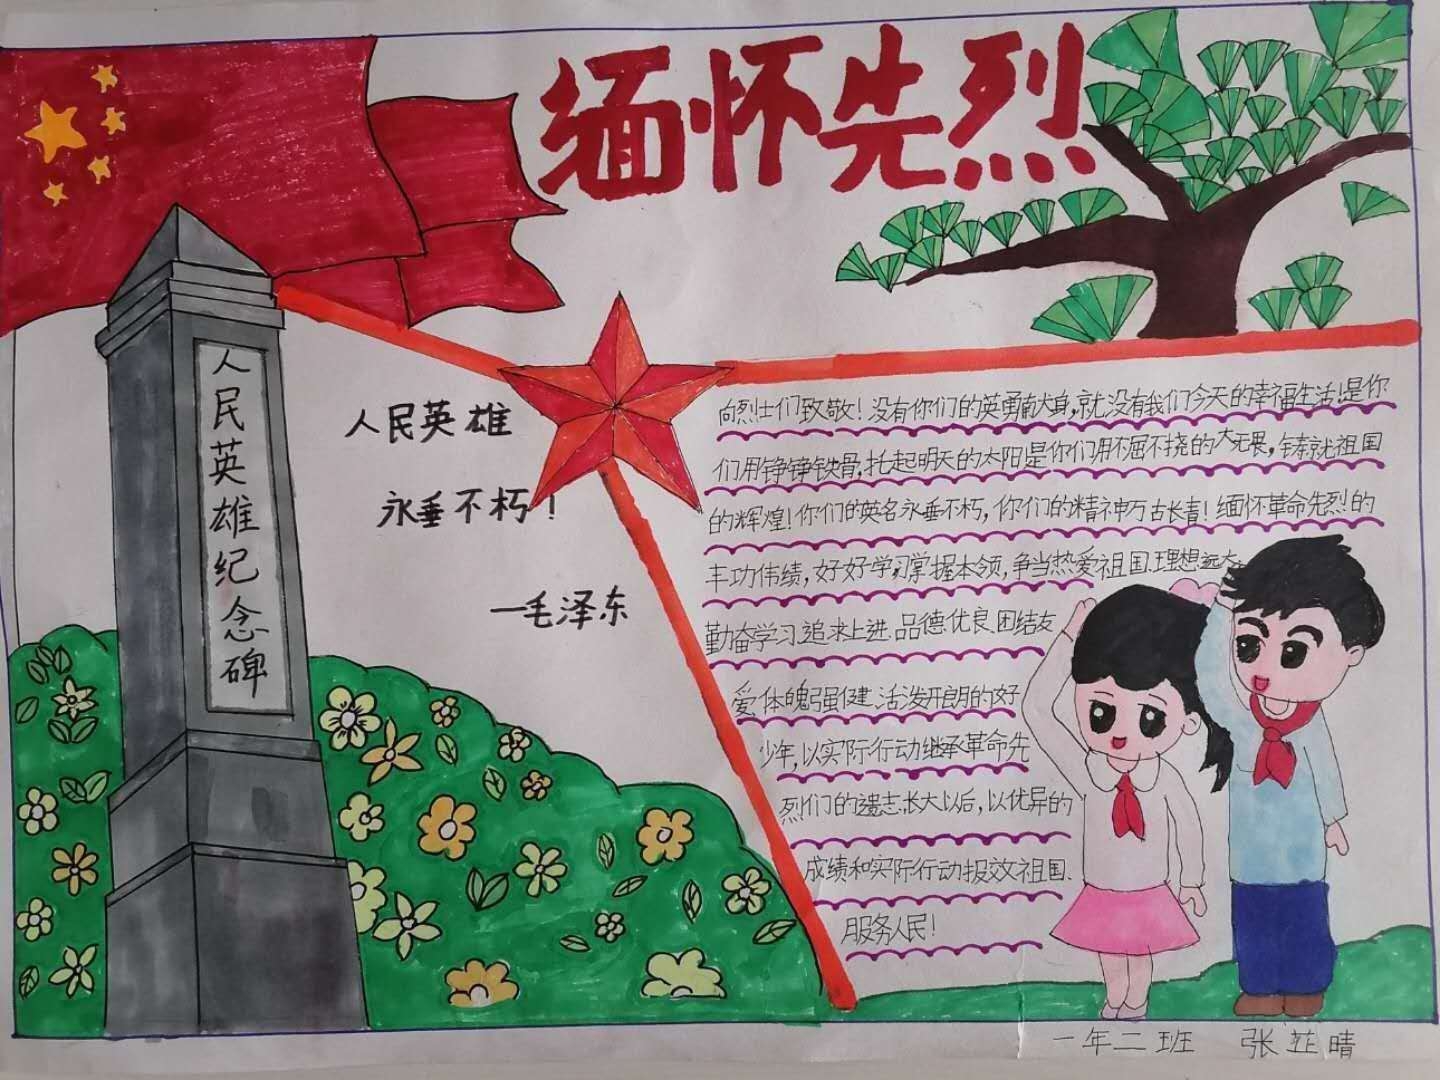 缅怀先烈
人民英雄纪念碑
人民英雄
永垂不朽！
—毛泽东
向烈士们致敬！没有你们的英勇献身，就没有我们今天的幸福生活！是你
们用铮铮铁骨，托起明天的太阳是你们用不屈不挠的大无畏，铸就祖国
的辉煌！你们的英名永垂不朽，你们的精神万古长青！缅怀革命先烈的
丰功伟绩，好好学习掌握本领，争当热爱祖国、理想远大、
勤奋学习、追求上进、品德优良、团结友
爱、体魄强健、活泼开朗的好
少年，以实际行动继承革命先
烈们的遗志.长大以后，以优异的
成绩和实际行动报效祖国、
服务人民！
一年二班 张芷晴